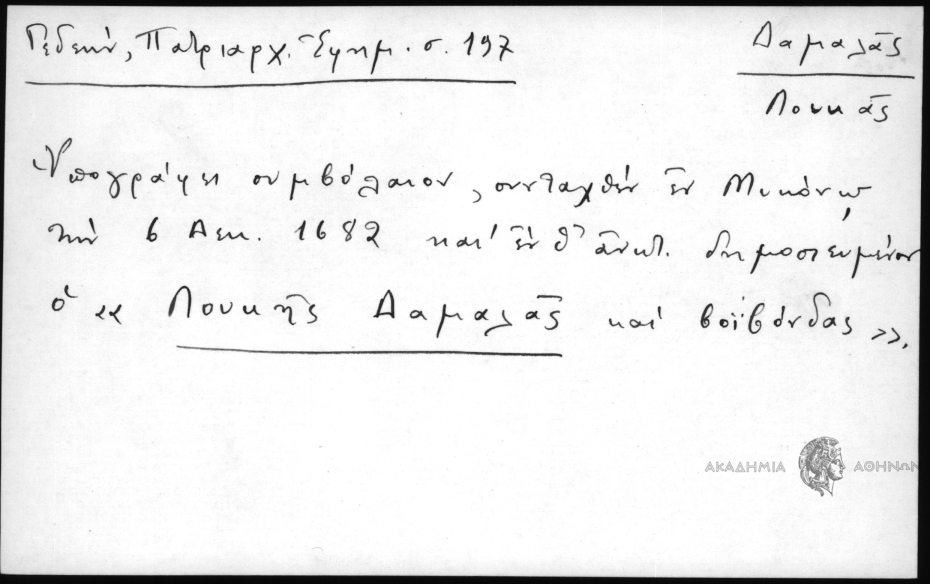 Γεδεών, Πατριαρχ. Ἐφημ. σ. 197
Δαμαλᾶς
Λουκᾶς
Ὑπογράφει συμβόλαιον, συνταχθέν ἐν Μυκόνῳ
τήν 6 Δεκ. 1682 καί ἐν ἀνωτ. δημοσιευμένον
ὁ «Λουκῆς Δαμαλᾶς καί βοϊβόνδας».
ΑΚΑΔΗΜΙΑ ΑΘΗΝΩΝ